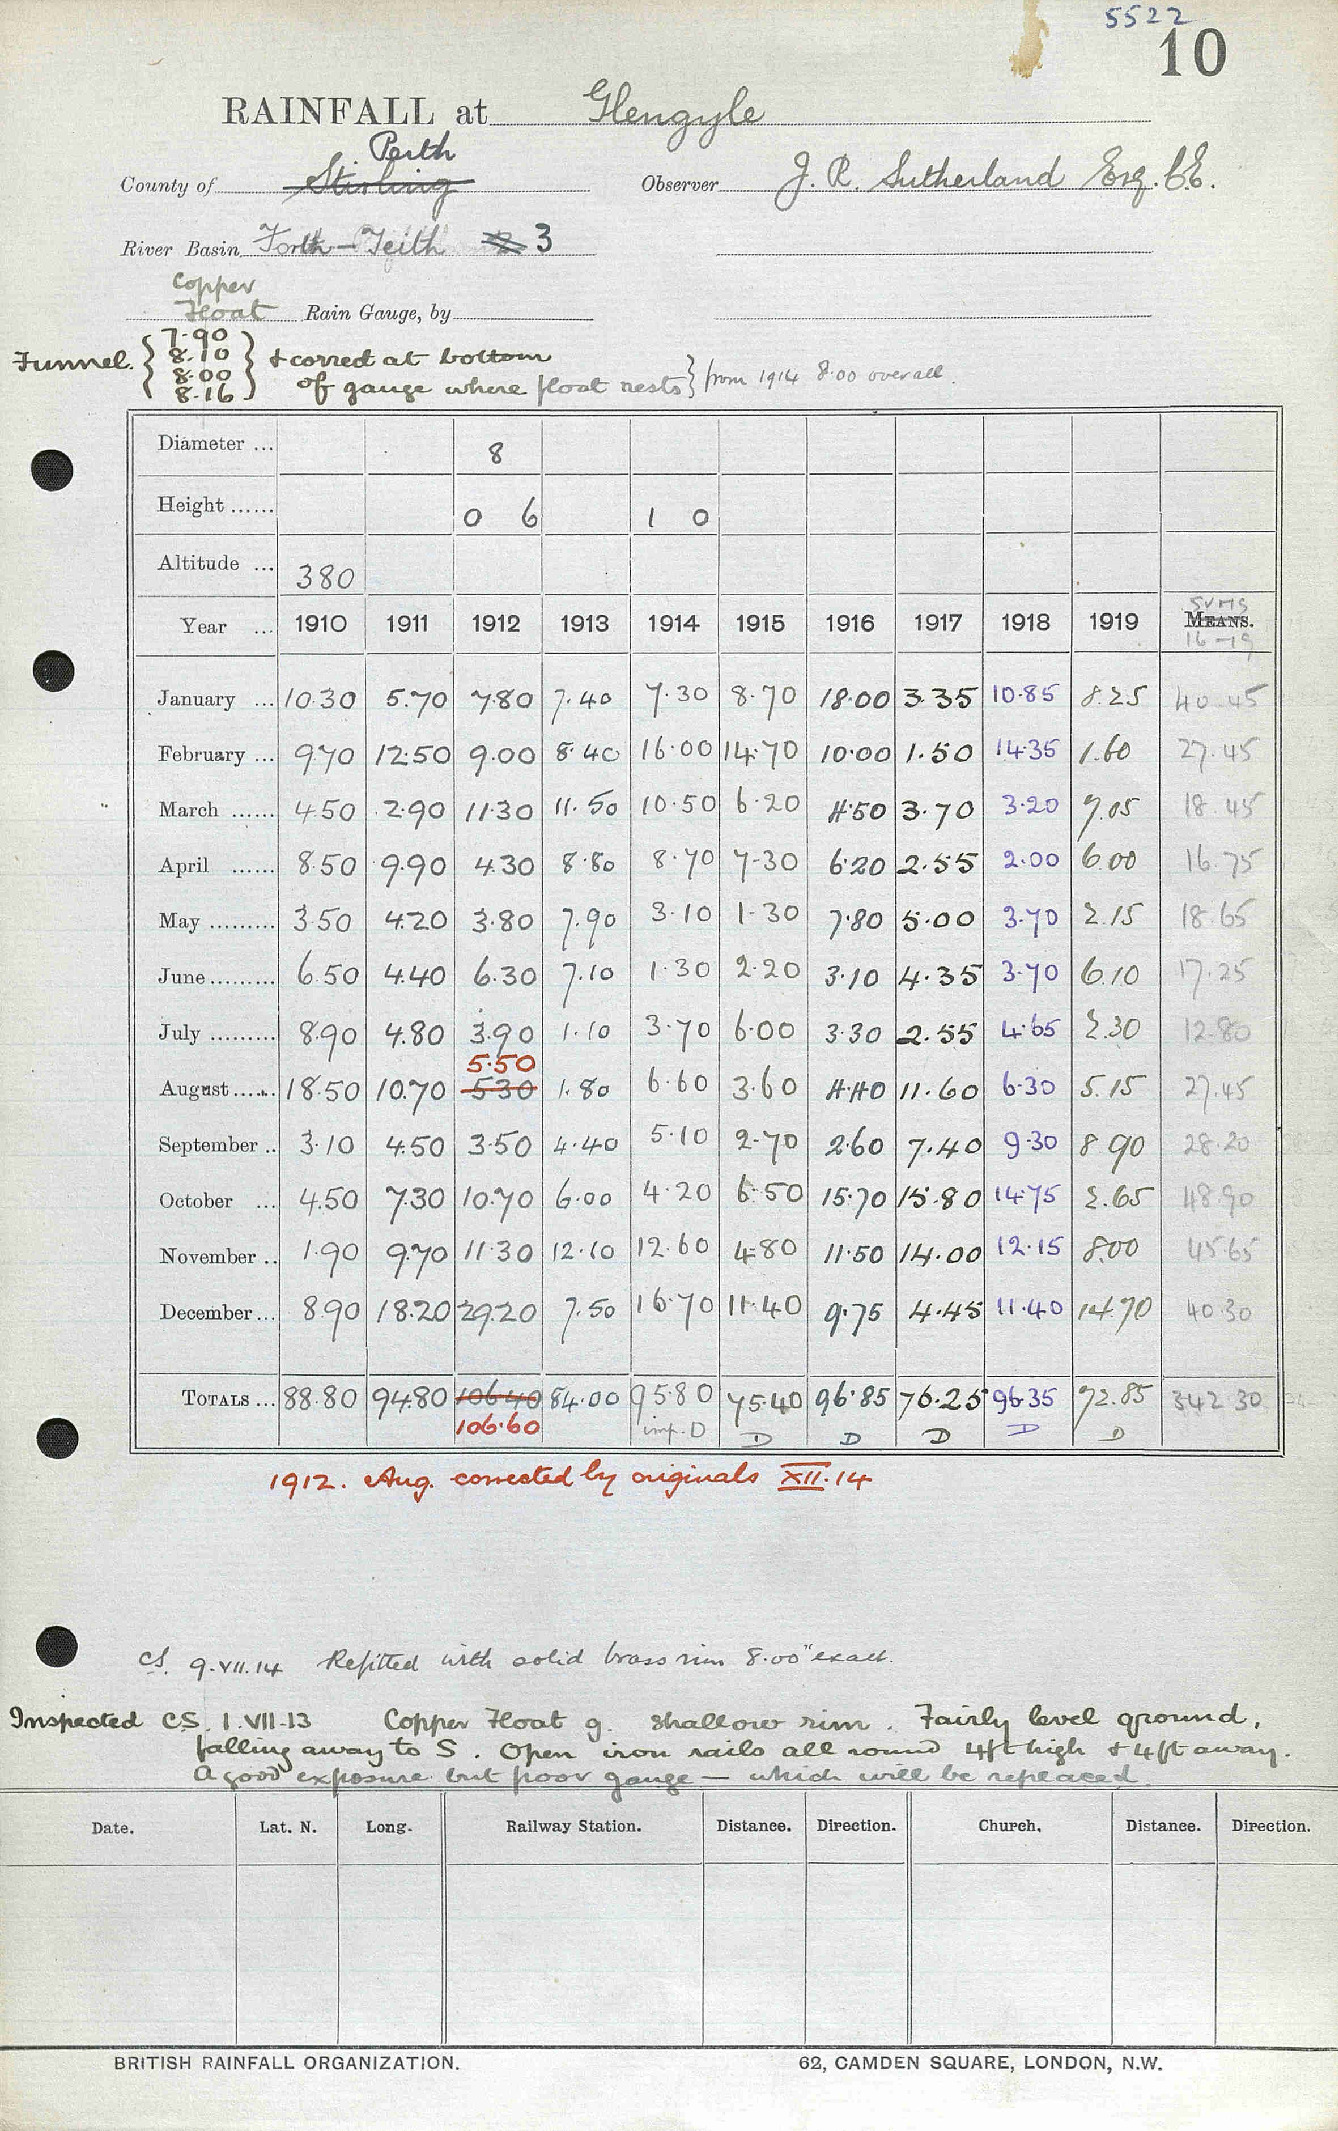 5522
10
RAINFALL at Glengyle
Perth
County of Stirling Observer J. R. Sutherland Esq. C.E.
River Basin Forth – Teith 3
Copper
Float Rain Gauge, by
7.90
Funnel. 8.10 & correct at bottom
8.00 of gauge where float rests from 1914 8.00 overall.
8.16
Diameter ... 8
Height ...... 0 6 1 0
Altitude ... 380
SUMS
Year ... 1910 1911 1912 1913 1914 1915 1916 1917 1918 1919 MEANS.
16-19
January ... 10.30 5.70 7.80 7.40 7.30 8.70 18.00 3.35 10.85 8.25 40.45
February ... 9.70 12.50 9.00 8.40 16.00 14.70 10.00 1.50 14.35 1.60 27.45
March ...... 4.50 2.90 11.30 11.50 10.50 6.20 4.50 3.70 3.20 7.05 18.45
April ...... 8.50 9.90 4.30 8.80 8.70 7.30 6.20 2.55 2.00 6.00 16.75
May ......... 3.50 4.20 3.80 7.90 3.10 1.30 7.80 5.00 3.70 2.15 18.65
June ......... 6.50 4.40 6.30 7.10 1.30 2.20 3.10 4.35 3.70 6.10 17.25
July ......... 8.90 4.80 3.90 1.10 3.70 6.00 3.30 2.55 4.65 2.30 12.80
5.50
August ...... 18.50 10.70 5.30 1.80 6.60 3.60 4.40 11.60 6.30 5.15 27.45
September .. 3.10 4.50 3.50 4.40 5.10 2.70 2.60 7.40 9.30 8.90 28.20
October ... 4.50 7.30 10.70 6.00 4.20 6.50 15.70 15.80 14.75 2.65 48.90
November .. 1.90 9.70 11.30 12.10 12.60 4.80 11.50 14.00 12.15 8.00 45.65
December ... 8.90 18.20 29.20 7.50 16.70 11.40 9.75 4.45 11.40 14.70 40.30
TOTALS ... 88.80 94.80 106.40 84.00 95.80 75.40 96.85 76.25 96.35 72.85 342.30
106.60 imp. D D D D D D
1912. Aug. corrected by originals XII.14
CS. 9.VII.14 Refitted with solid brass rim 8.00" exact.
Inspected CS. 1.VII.13 Copper Float g. shallow rim. Fairly level ground,
falling away to S. Open iron rails all round 4ft high & 4ft away.
A good exposure but poor gauge – which will be replaced.
Date. Lat. N. Long. Railway Station. Distance. Direction. Church. Distance. Direction.
BRITISH RAINFALL ORGANIZATION. 62, CAMDEN SQUARE, LONDON, N.W.